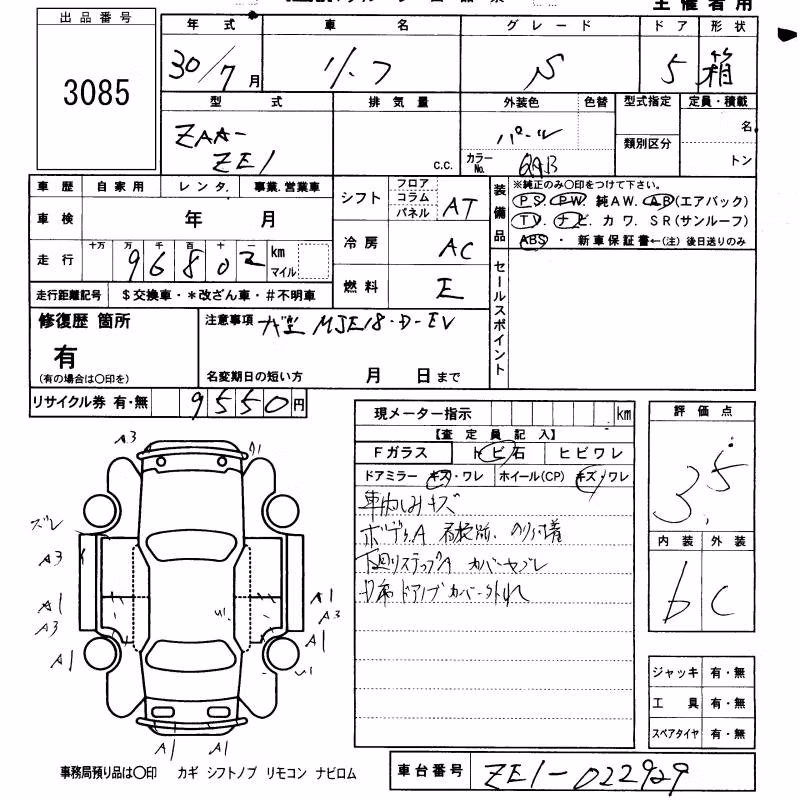 主催者用
出品番号
3085
年式 車名 グレード ドア 形状
30/7月 リーフ S 5 箱
型式 排気量 外装色 色替 型式指定 定員・積載
ZAA-ZE1 c.c. パール 類別区分 名
カラーNo. QAB トン
車歴 自家用 レンタ. 事業.営業車
車検 年 月
走行 十万 万 千 百 十 一 km マイル
96802
走行距離記号 $交換車・*改ざん車・#不明車
シフト フロア コラム パネル AT
冷房 AC
燃料 E
装備品
※純正のみ○印をつけて下さい。
PS. PW. 純AW. AB(エアバック)
TV. ナビ. カワ. SR(サンルーフ)
ABS ・ 新車保証書←(注)後日送りのみ
セールスポイント
修復歴 箇所
有
(有の場合は○印を)
注意事項 MJE18-D-EV
名変期日の短い方 月 日まで
リサイクル券 有・無 9550円
現メーター指示 km
【査定員記入】
Fガラス トビ石 ヒビワレ
ドアミラー キズ・ワレ ホイール(CP) キズ/ワレ
車内しみキズ
ボディA のり付着
下廻りステップA カバーヤブレ
ドアノブカバー外れ
評価点
3.5
内装 外装
b C
ジャッキ 有・無
工具 有・無
スペアタイヤ 有・無
A3
ズレ
A3
A1
A3
A1
A1
A3
A1
A1 A1
事務局預り品は○印 カギ シフトノブ リモコン ナビロム
車台番号 ZE1-022929